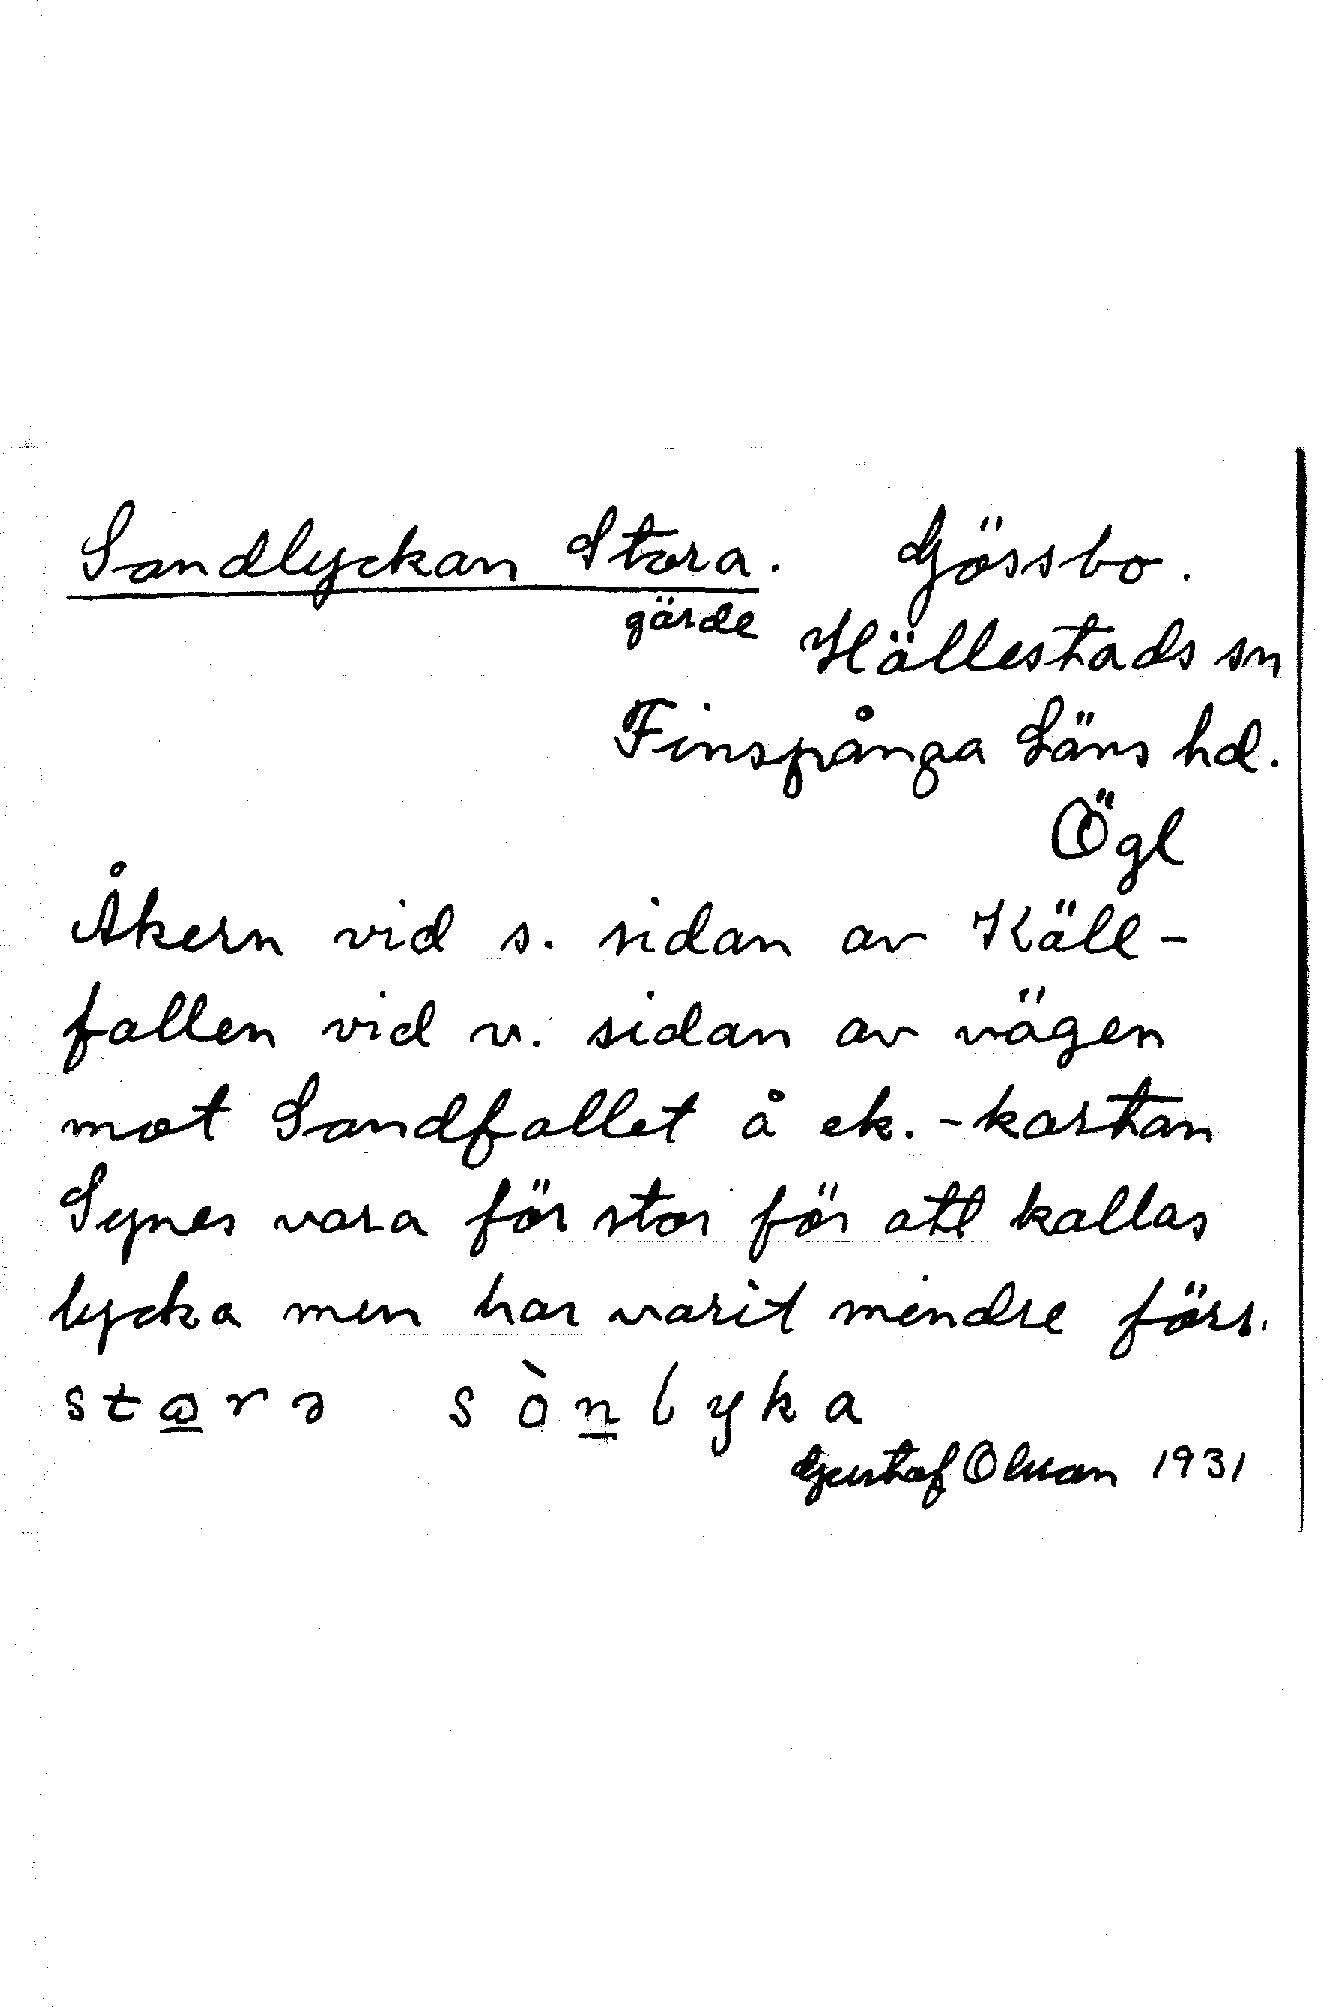 Sandlyckan Stora. Gössbo.
gärde Hällestads sn
Finspånga Läns hd.
Ögl
Åkern vid s. sidan av Käll-
fallen vid v. sidan av vägen
mot Sandfallet å ek.-kartan
Synes vara för stor för att kallas
lycka men har varit mindre förr.
stɷrə sònlyka
Gustaf Olsson 1931